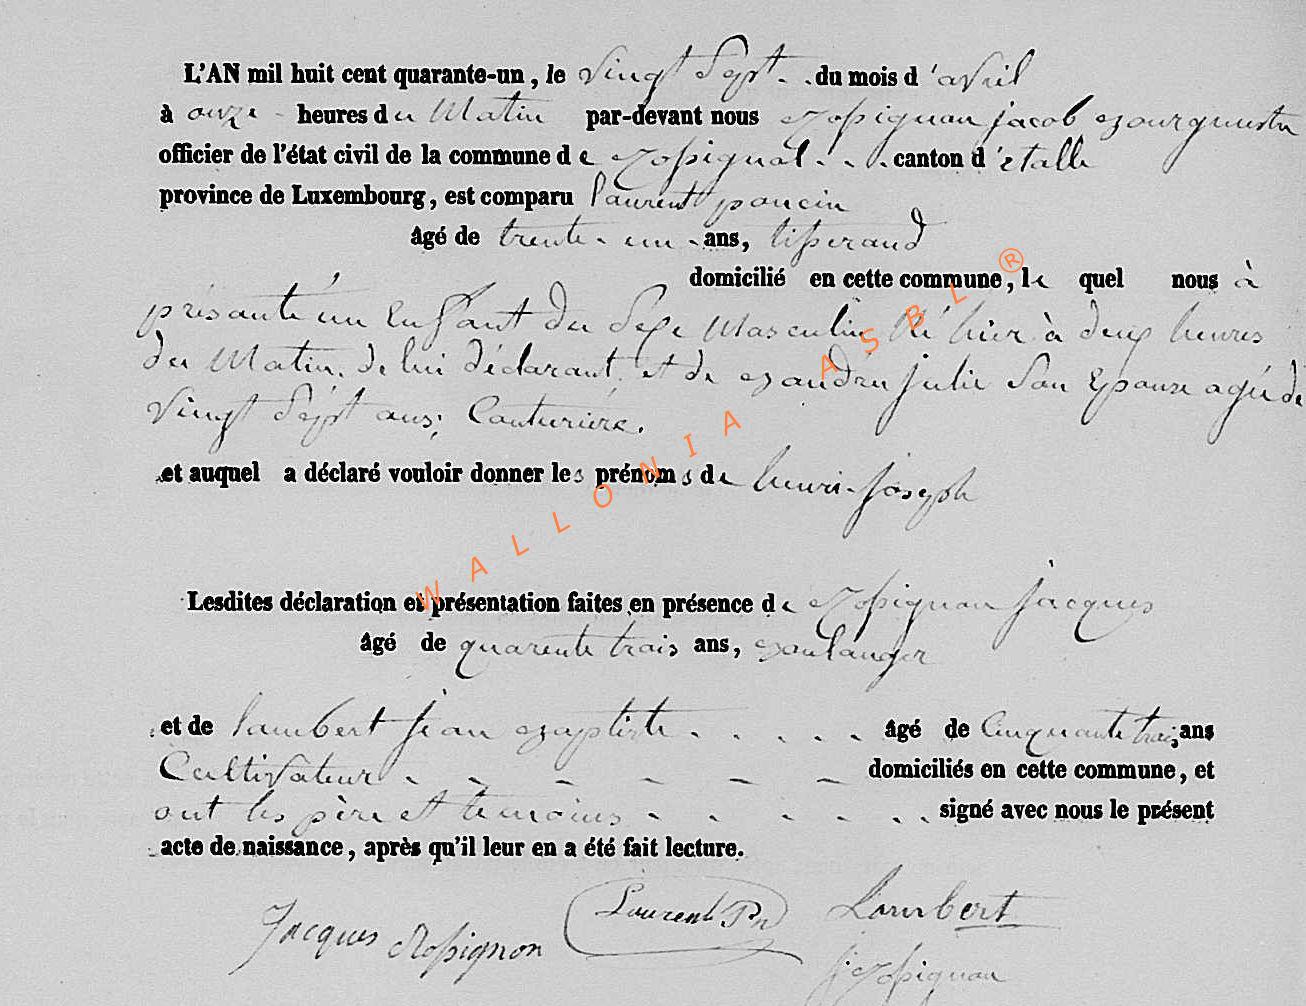 L'AN mil huit cent quarante-un, le vingt sept . . du mois d'avril
à onze - heures du Matin par-devant nous Rossignon jacob Bourguestre
officier de l'état civil de la commune de Rossignol . . . canton d'étalle
province de Luxembourg, est comparu laurent poncin
âgé de trente - un - ans, tisserand
domicilié en cette commune, le quel nous à
présanté un Enfant du Sexe Masculin Né hier à deux heures
du Matin. de lui déclarant, et de Baudru julie Son Epouse agée de
vingt Sept ans; Couturière.
et auquel a déclaré vouloir donner les prénoms de henri-joseph
Lesdites déclaration et présentation faites en présence de Rossignon jacques
âgé de quarente trois ans, Boulanger
et de lambert jean Baptiste . . . . . âgé de Cinquante trois ans
Cultivateur - - - - - - domiciliés en cette commune, et
ont les père et temoins - . - - . . signé avec nous le présent
acte de naissance, après qu'il leur en a été fait lecture.
Jacques Rossignon Laurent Pn Lambert
j Rossignon
WALLONIA ASBL ®